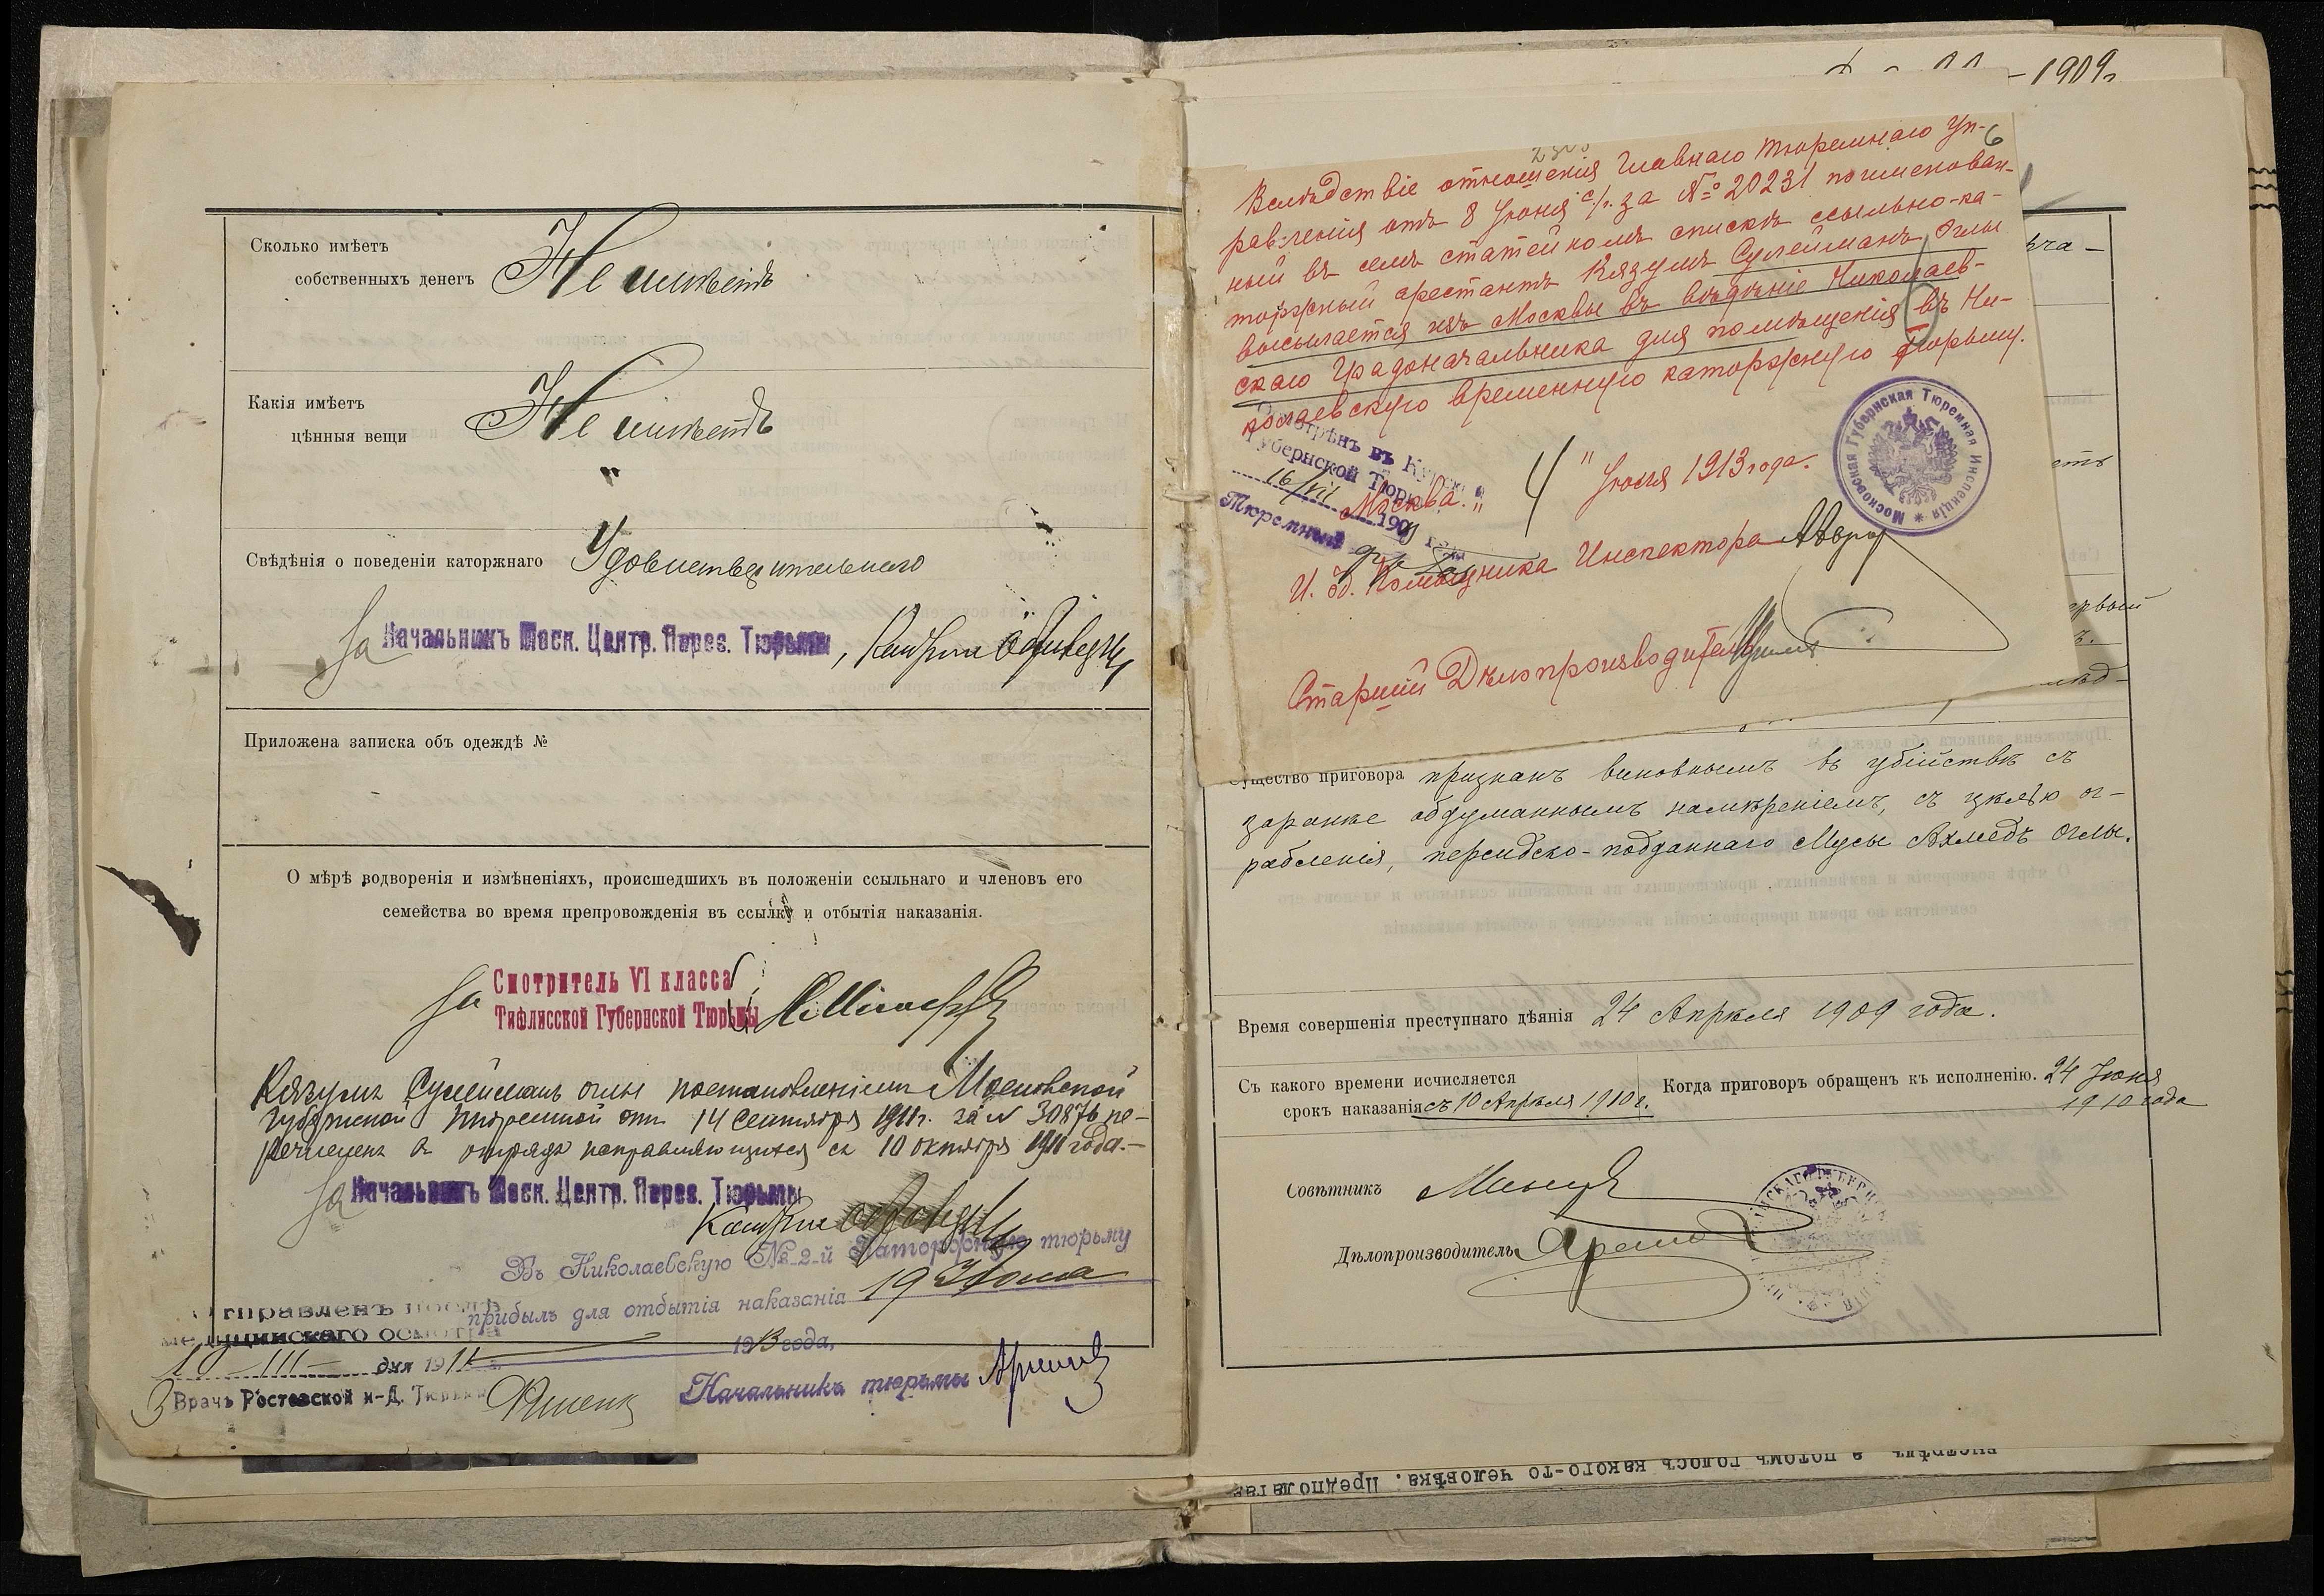 Сколько имѣетъ
собственныхъ денегъ Не имѣетъ
Какія имѣетъ
цѣнныя вещи Не имѣетъ
"
Свѣдѣнія о поведеніи каторжнаго Удовлетворительнаго
За Начальникъ Моск. Центр. Перес. Тюрьмы,
Приложена записка объ одеждѣ №
О мѣрѣ водворенія и измѣненіяхъ, происшедшихъ въ положеніи ссыльнаго и членовъ его
семейства во время препровожденія въ ссылку и отбытія наказанія.
За Смотритель VI класса
Тифлисской Губернской Тюрьмы
Кязумъ Сулейманъ оглы постановленіемъ Московской
Губернской Тюремной отъ 14 Сентября 1911г. за № 30876 пе-
речисленъ въ отрядъ исправляющихся съ 10 октября 1911 года.—
За Начальникъ Моск. Центр. Перес. Тюрьмы
Въ Николаевскую № 2-й Каторжную тюрьму
прибылъ для отбытія наказанія 19 Іюля
1913 года.
Начальникъ тюрьмы
Отправленъ послѣ
медицинскаго осмотра
10 - III - дня 191
Врачъ Ростовской н-Д. Тюрьмы
- 1909г
6
Вслѣдствіе отношенія Главнаго Тюремнаго Уп-
равленія отъ 8 Іюня с/г. за № 20231 поименован-
ный въ семъ статейномъ спискѣ ссыльно-ка-
торжный арестантъ Кязумъ Сулейманъ Оглы
высылается изъ Москвы въ вѣдѣніе Николаев-
скаго Градоначальника для помѣщенія въ Ни-
колаевскую временную каторжную тюрьму.
Осмотрѣнъ въ Курск
Губернской Тюрь
16/VII 190 года
Тюремный
Москва. "4" Іюля 1913 года.
Московская Губернская Тюремная Инспекція
И. об. Помощника Инспектора
Старшій Дѣлопроизводитель
Существо приговора признанъ виновнымъ въ убійствѣ съ
заранѣе обдуманнымъ намѣреніемъ, съ цѣлью ог-
рабленія, персидско-подданнаго Мусы Ахмедъ Оглы.
Время совершенія преступнаго дѣянія 24 Апрѣля 1909 года.
Съ какого времени исчисляется
срокъ наказанія съ 10 Апрѣля 1910 г.
Когда приговоръ обращенъ къ исполненію. 24 Іюня
1910 года
Совѣтникъ
Дѣлопроизводитель
выстрѣлъ, а потомъ голосъ какого-то человѣка. Предполагая